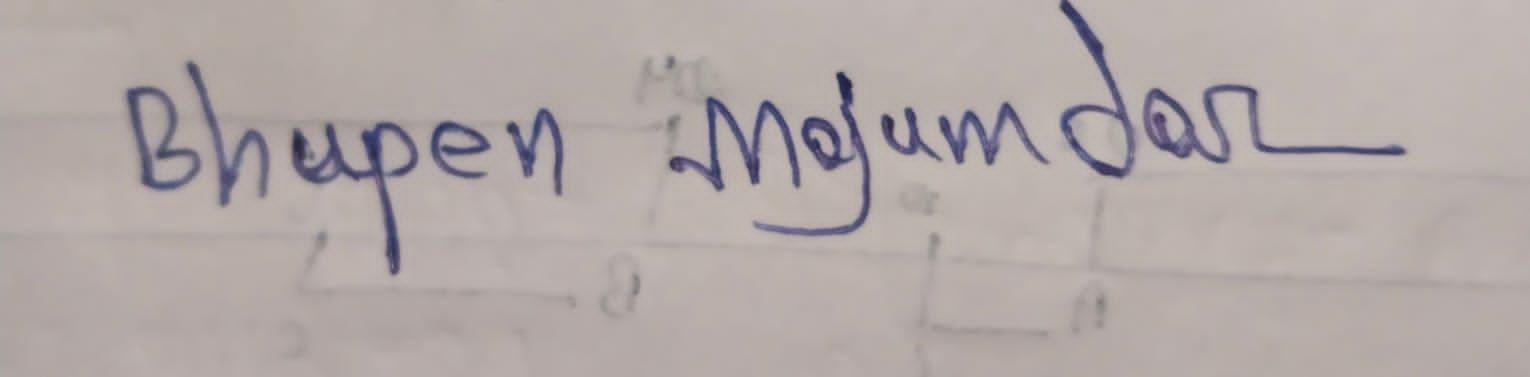 Bhupen Majumdar